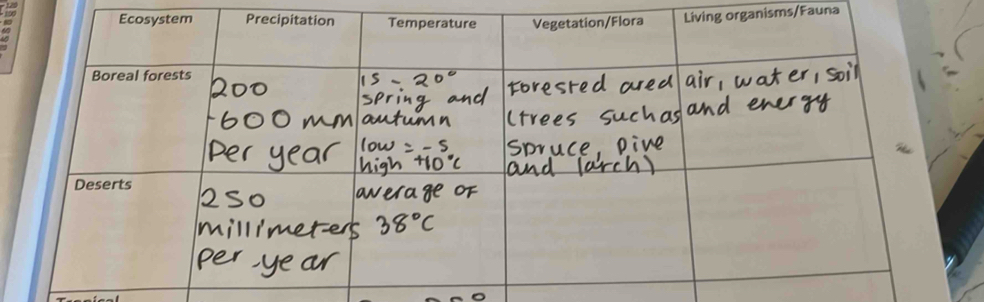 Ecosystem Precipitation Temperature Vegetation/Flora Living organisms/Fauna
Boreal forests
200
-600 mm
per year
15 - 20°
spring and
autumn
low = -5
high +10°c
Forested ared
(trees such as
spruce, pine
and larch)
air, water, soil
and energy
Deserts
250
millimeters
per year
average of
38°C